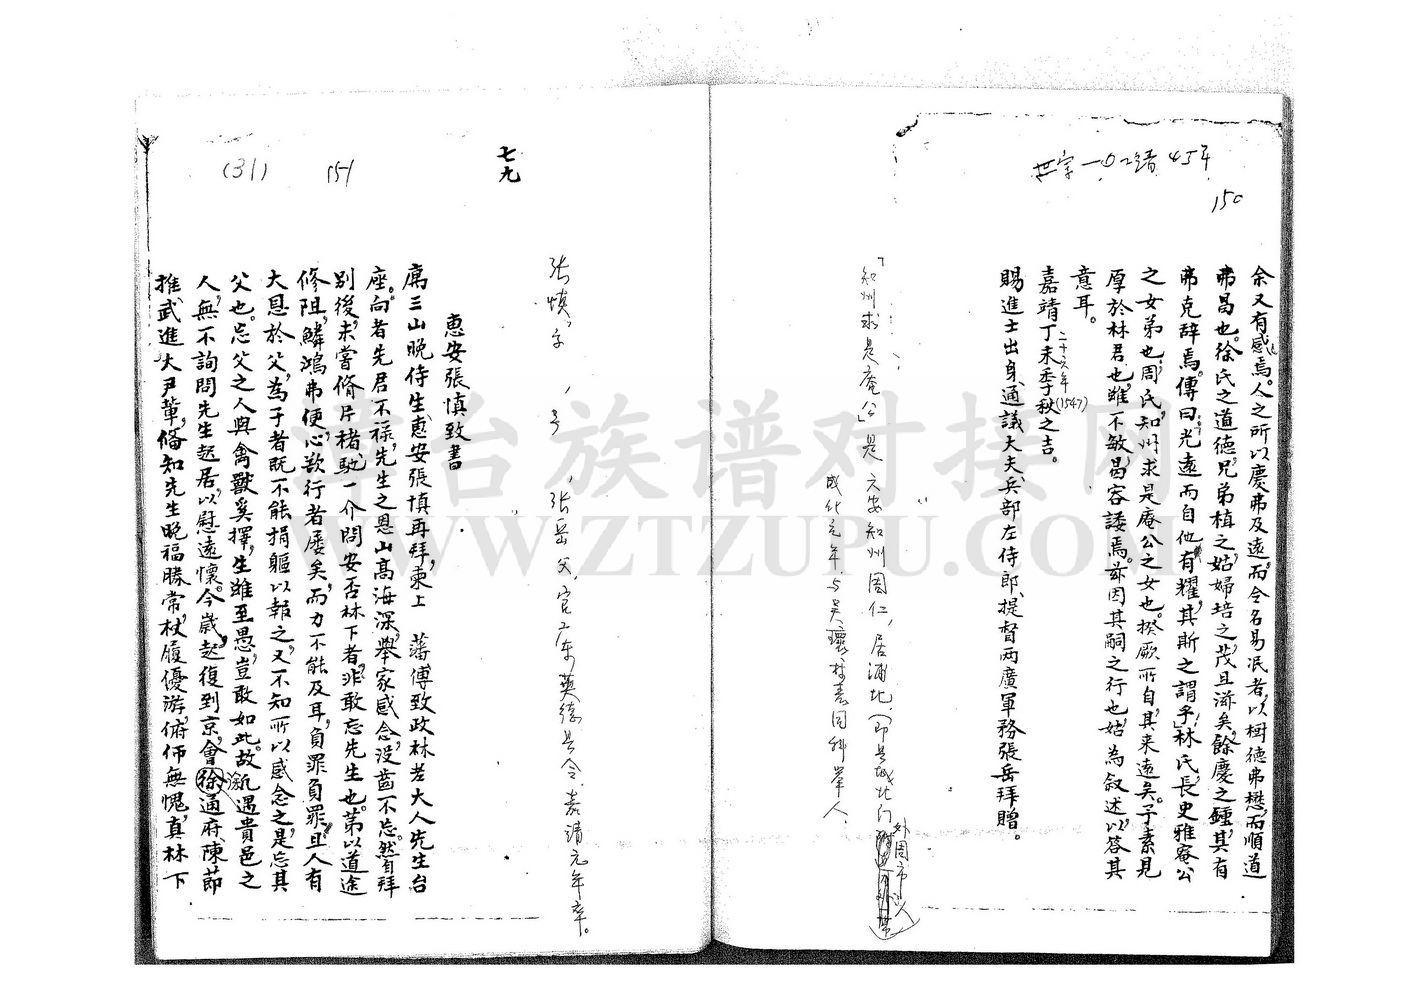 世宗一口靖45年
150
余又有感焉。人之所以慶弗及遠，而令名易泯者，以樹德弗懋，而順道
弗昌也。徐氏之道德，兄弟植之，姑婦培之，茂且滋矣，餘慶之鍾，其有
弗克辭焉。傳曰：光遠而自他有耀，其斯之謂乎！林氏，長史雅菴公
之女弟也。周氏，知州求是庵公之女也。揆厥所自，其来遠矣。子素見
厚於林君也，雖不敏，曷容諉焉。茲因其嗣之行也，姑為叙述，以答其
意耳。
嘉靖丁未季秋之吉。
二十六年(1547)
賜進士出身，通議大夫，兵部左侍郎，提督两廣軍務張岳拜贈。
「知州求是庵公」是六安知州周仁，居浦北，(即县城北门外周市
成化元年，与吴璦、林春同科举人。
七九
(31)
151
张慎，字　，号　，张岳父，官广东英德县令，嘉靖元年卒。
惠安張慎致書
寓三山晚侍生惠安張慎再拜，柬上　藩傅致政林老大人先生台
座。向者先君不祿，先生之恩山高海深，舉家感念，没齒不忘。然自拜
别後，未嘗脩片楮，馳一介，問安否林下者，非敢忘先生也。第以道途
修阻，鱗鴻弗便，心欲行者屢矣，而力不能及耳，負罪負罪，且人有
大恩於父，為子者既不能捐軀以報之，又不知所以感念之，是忘其
父也。忘父之人與禽獸奚擇，生雖至愚，豈敢如此。故凡遇貴邑之
人，無不詢問先生起居，以慰遠懷。今歲起復到京，會徐通府、陳節
推、武進大尹輩，備知先生晚福勝常，杖履優游，俯仰無愧，真林下
草台族谱对接网
WWW.ZTZUPU.COM